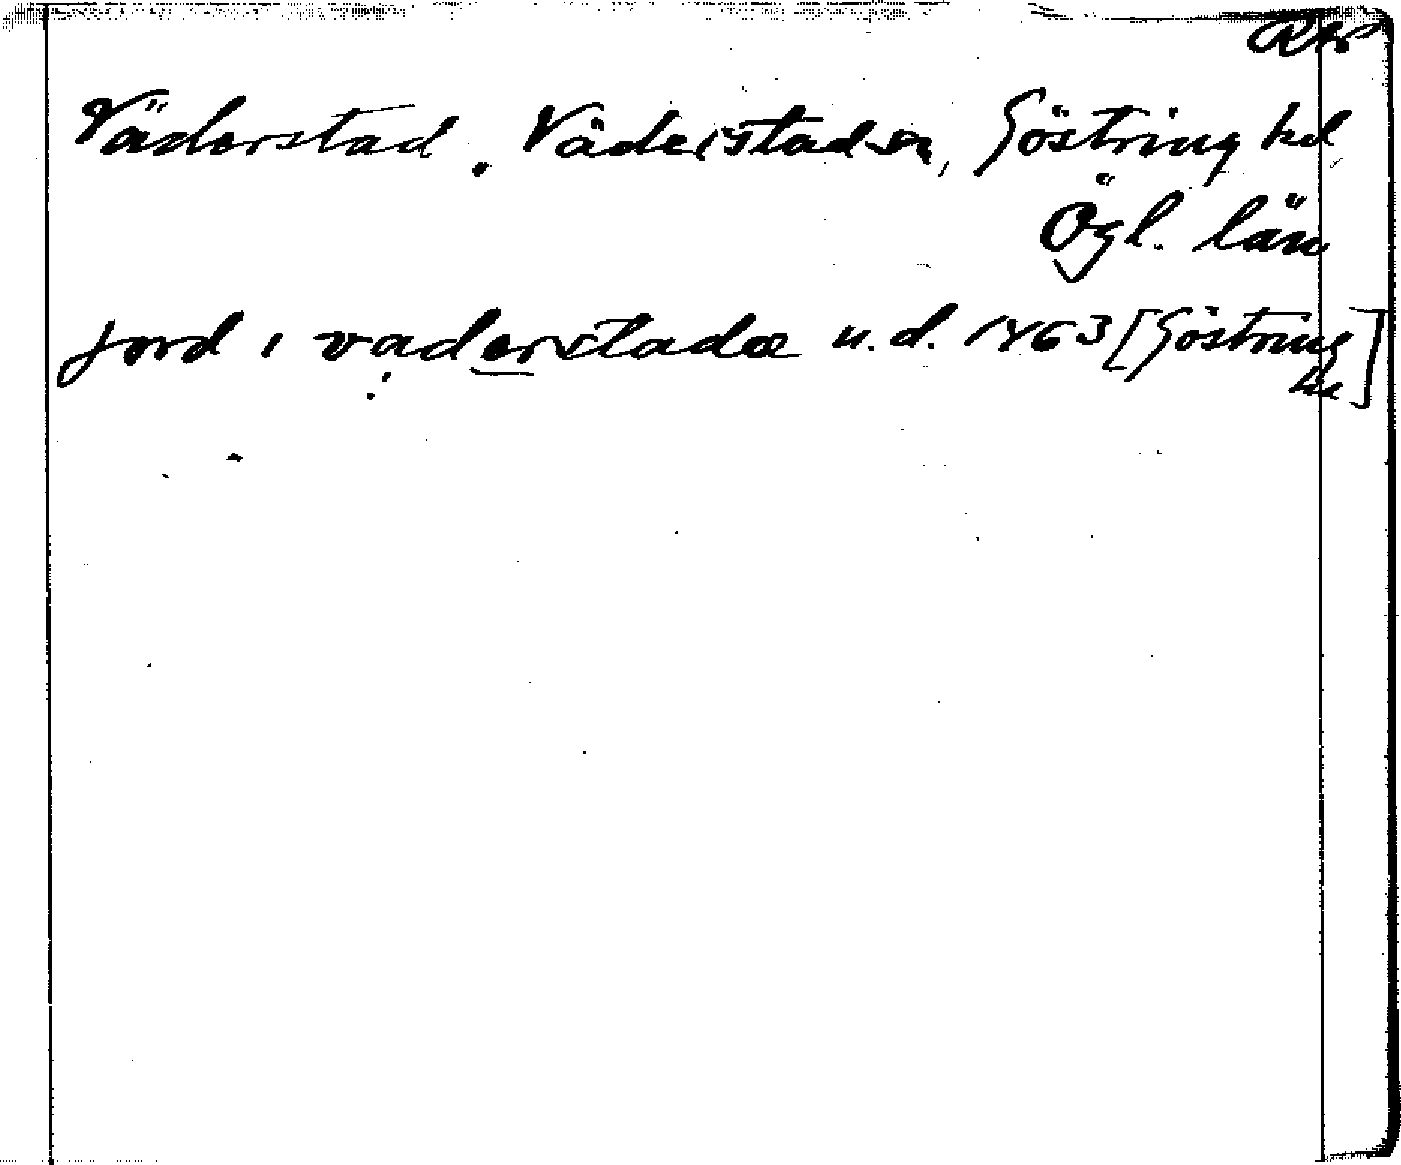 Väderstad. Väderstad sn, Göstring hd
Ögl. län
jord i vaderstadæ u.d. 1463 [Göstring
hd]